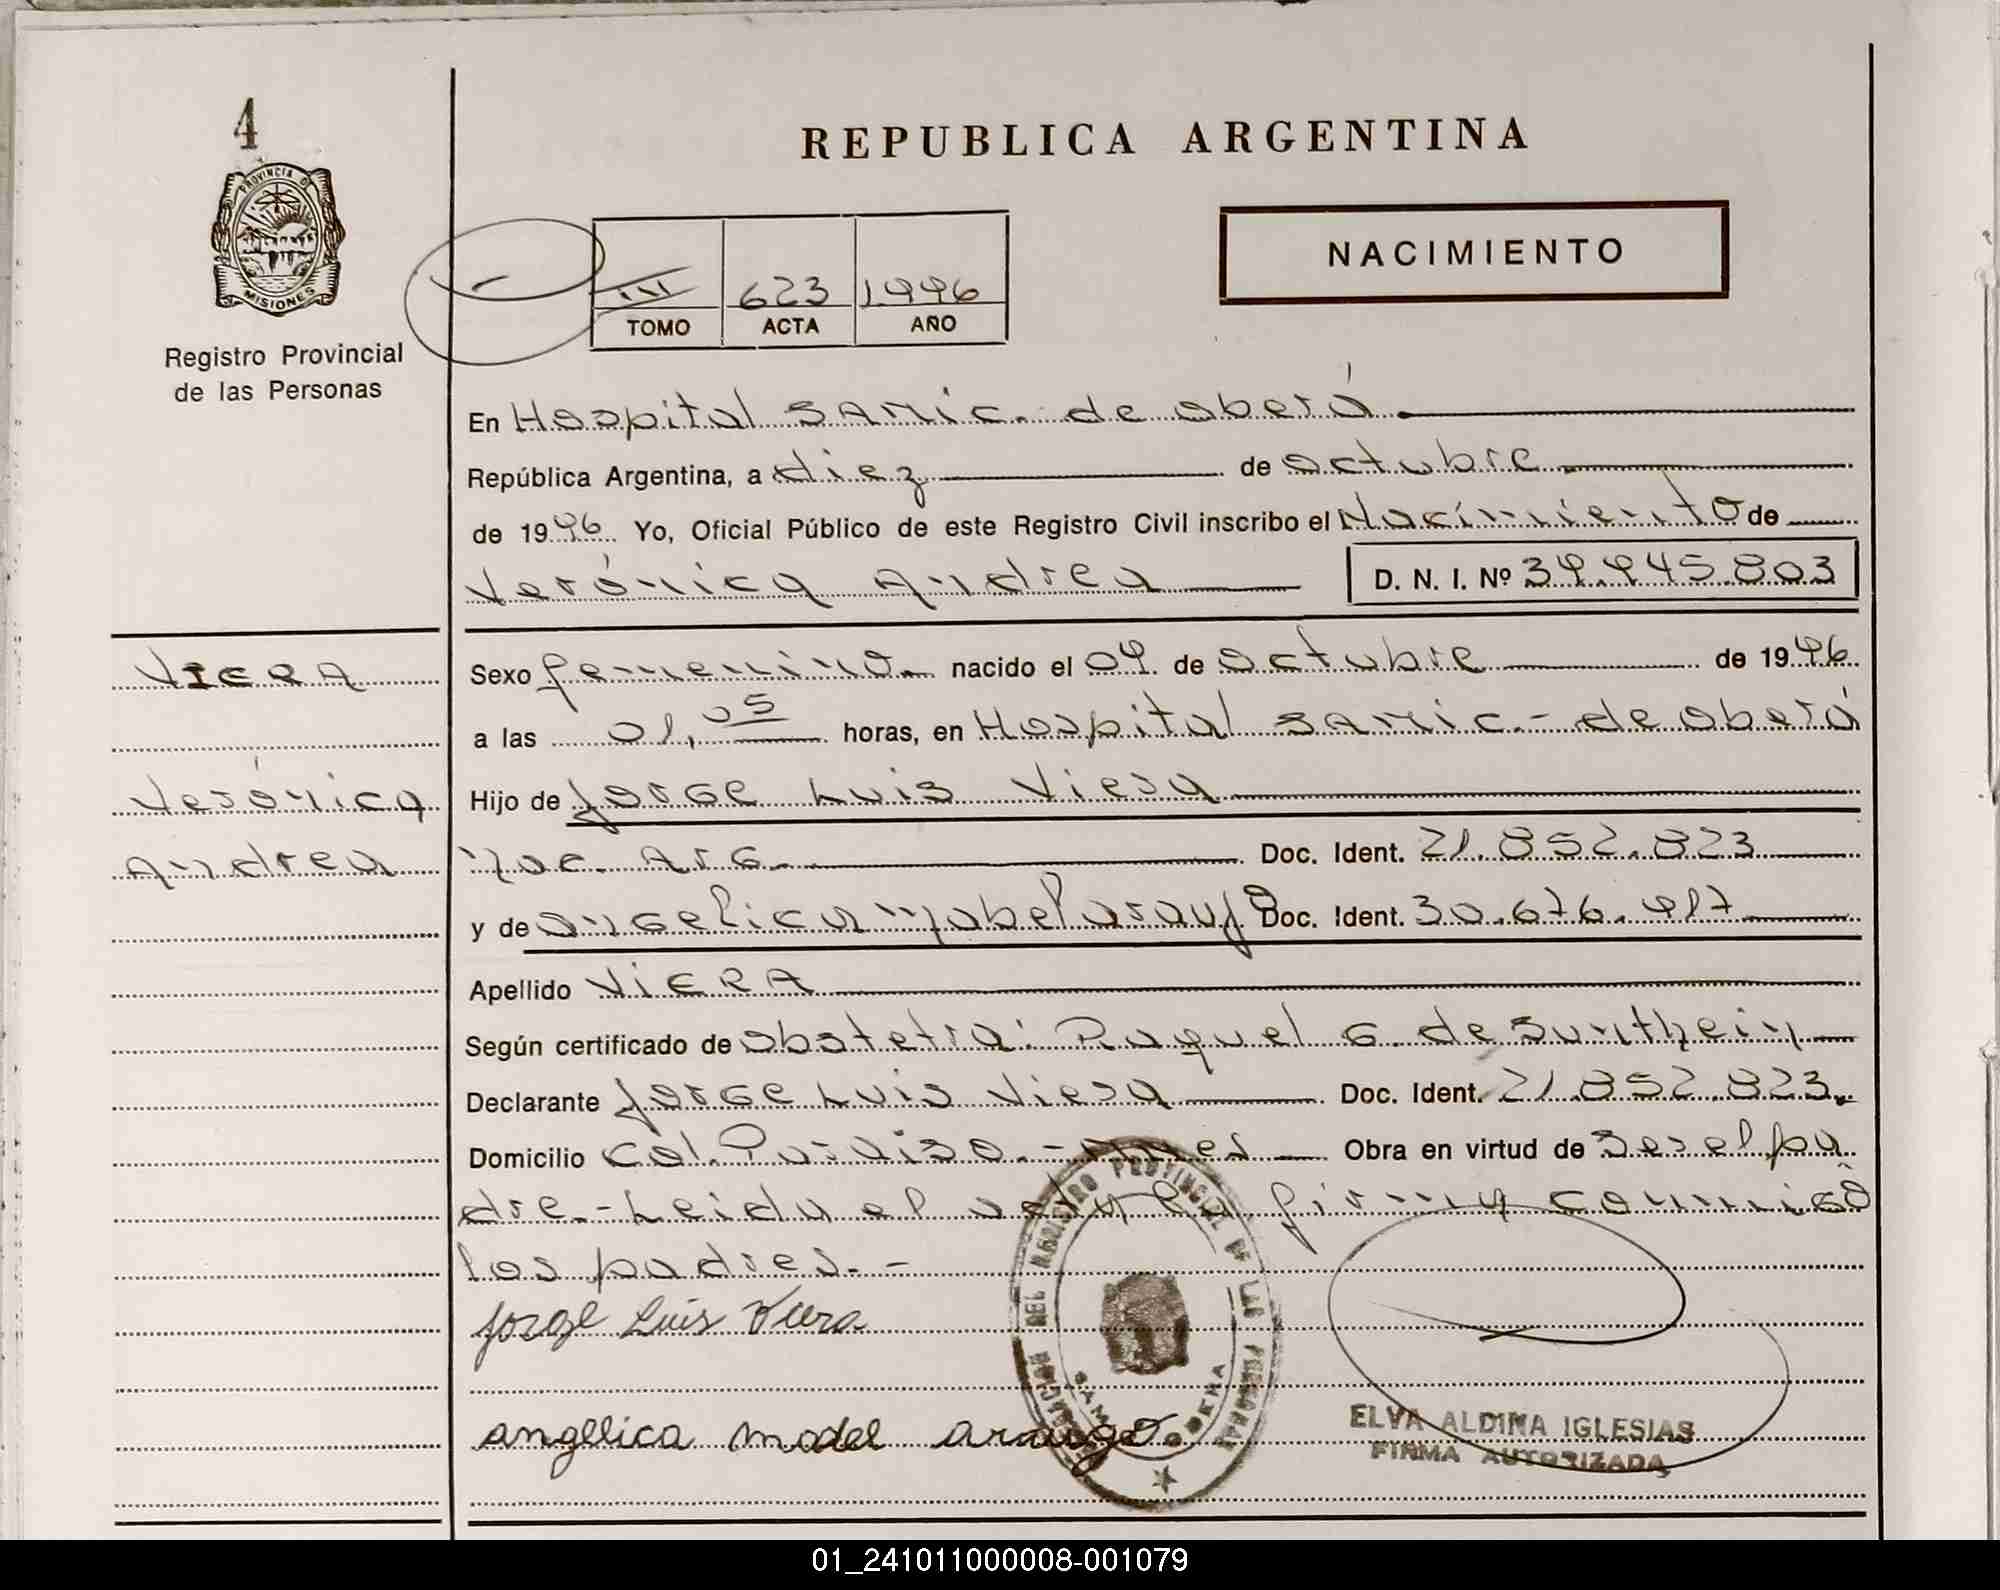 4
PROVINCIA DE
MISIONES
Registro Provincial
de las Personas
REPUBLICA ARGENTINA
NACIMIENTO
III 623 1996
TOMO ACTA AÑO
En Hospital SAMic.- de oberá
República Argentina, a diez de octubre
de 1996 Yo, Oficial Público de este Registro Civil inscribo el Nacimiento de
Verónica Andrea D. N. I. Nº 39.945.803
VIERA
Verónica
Andrea
Sexo femenino nacido el 09 de octubre de 1996
a las 01,05 horas, en Hospital SAMic.- de oberá
Hijo de Jorge Luis Viera
Nac. Arg. Doc. Ident. 21.852.823
y de Angelica Mabel Araujo Doc. Ident. 30.676.917
Apellido VIERA
Según certificado de obstetra: Raquel G. de
Declarante Jorge Luis Viera Doc. Ident. 21.852.823.
Domicilio Col. Paraiso.- Obra en virtud de ser el pa
dre.- Leida el acta la firma conmigo
los padres.-
Jorge Luis Viera
angelica mabel araujo
DEL REGISTRO PROVINCIAL DE LAS PERSONAS
ELVA ALDINA IGLESIAS
FIRMA AUTORIZADA
01_241011000008-001079